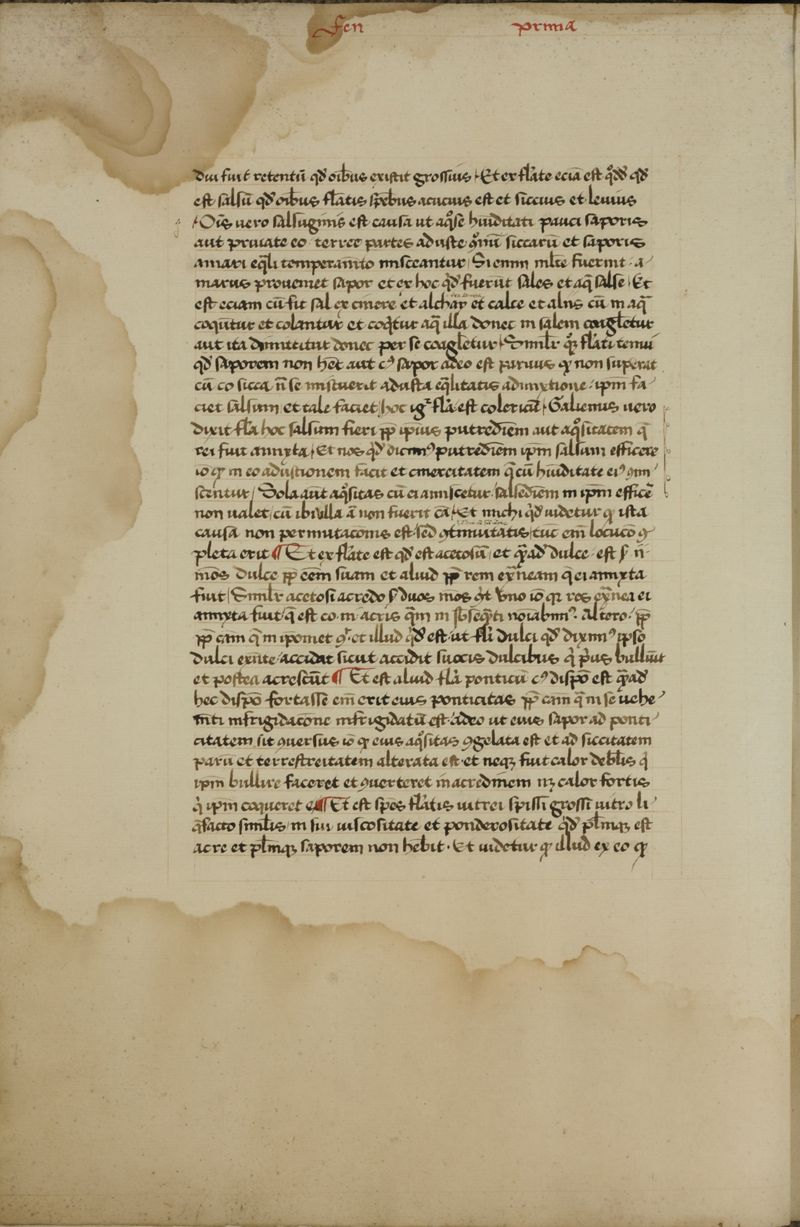 Fen prima
diu fuit retentũ qd̃ oĩbus existit grossius Et ex flãte eciã est qd̃d̃ qd̃
est salsũ qd̃ oĩbus flãtis spẽbus acucius est et siccius et leuius
Oĩs uero salsuginis est causa ut aq̃se hũiditati pauci saporis
aut priuate eo terree partes aduste q̃rũ siccarũ et saporis
amari eq̃li temperamẽto misceantur Si enim mlt̃e fuerint a
marus proueniet sapor et ex hoc qd̃ fuerũt sales et aq̃ salse Et
est eciam cũ fit sal ex cinere et alchar et calce et aliis cũ in aq̃
coquũtur et colantur et coq̃tur aq̃ illa donec in salem coagletur
aut ita dimittitur donec per se coagletur Similr̃ q̃ flãti tenui
qd̃ saporem non hẽt aut cꝰ sapor adeo est paruus qꝫ non superat
cũ co sicca ñ se miscuerit adusta eq̃litatis admixtione ipm̃ fa
ciet salsum et tale faciet hoc ig͛ flã est colericũ Galienus uero
dixit flã hoc salsum fieri ꝓp̃ ipius putredĩem aut aq̃sitatem q̃
rei fuit annixta Et nos qd̃ dicimꝰ putredĩem ipm̃ salsum efficere
io qꝫ in eo adustionem facit et cinereitatem q̃ cũ hũiditate eiꝰ ꝯm
scẽntur Sola aũt aq̃sitas cũ ei amiscetur salsedĩem in ipm̃ efficẽ
non ualet cũ ibi ulla ã non fuerit cã Et michi qd̃ uidetur qꝫ ista
causa non permutacõnis est sed ꝯtinuitatis tũc em̃ locucõ ꝯ
pleta erit ¶ Et ex flãte est qd̃ est acetosũ et q̃dã dulce est ẽ ñ
mos dulce ꝓp̃ cẽm suam et aliud ꝓp̃ rem eẋneam q̃ ei annixta
fuit Similr̃ acetosi acredo ẽ duos mos õt uno io qꝫ res eẋnea ei
annixta fuit q̃ est co in acris q̃m in sb̃seq̃ti noĩabimꝰ Altero ꝓp̃
ꝓp̃ cam q̃ in ipomet ꝯ͛ et illud qd̃ est ut flĩ dulci qd̃ diximꝰ ipso
dulci exñte accidat sicut accidit sucis dulcibus q̃ p̃us bulliũt
et postea acrescũt ¶ Et est aliud flã ponticũ cꝰ dispõ est q̃dã
hec dispõ fortasse em̃ erit eius ponticitas ꝓp̃ cam q̃ in se uehe
mẽti infrigidacõne infrigidatũ est adeo ut eius sapor ad ponti
citatem sit ꝯuersus io qꝫ eius aq̃sitas ꝯgelata est et ad siccitatem
parũ et terrestreitatem alterata est et neqꝫ fuit calor debilis q̃
ipm̃ bullire faceret et ꝯuerteret in acredinem nꝫ calor fortis
q̃ ipm̃ coqueret ¶ Et est spẽs flãtis uitrei spissi grossi uitro li
q̃facto similis in sui uiscositate et ponderositate qd̃ plĩmqꝫ est
acre et plĩmqꝫ saporem non hẽbit Et uidetur qꝫ illud ex eo qꝫ